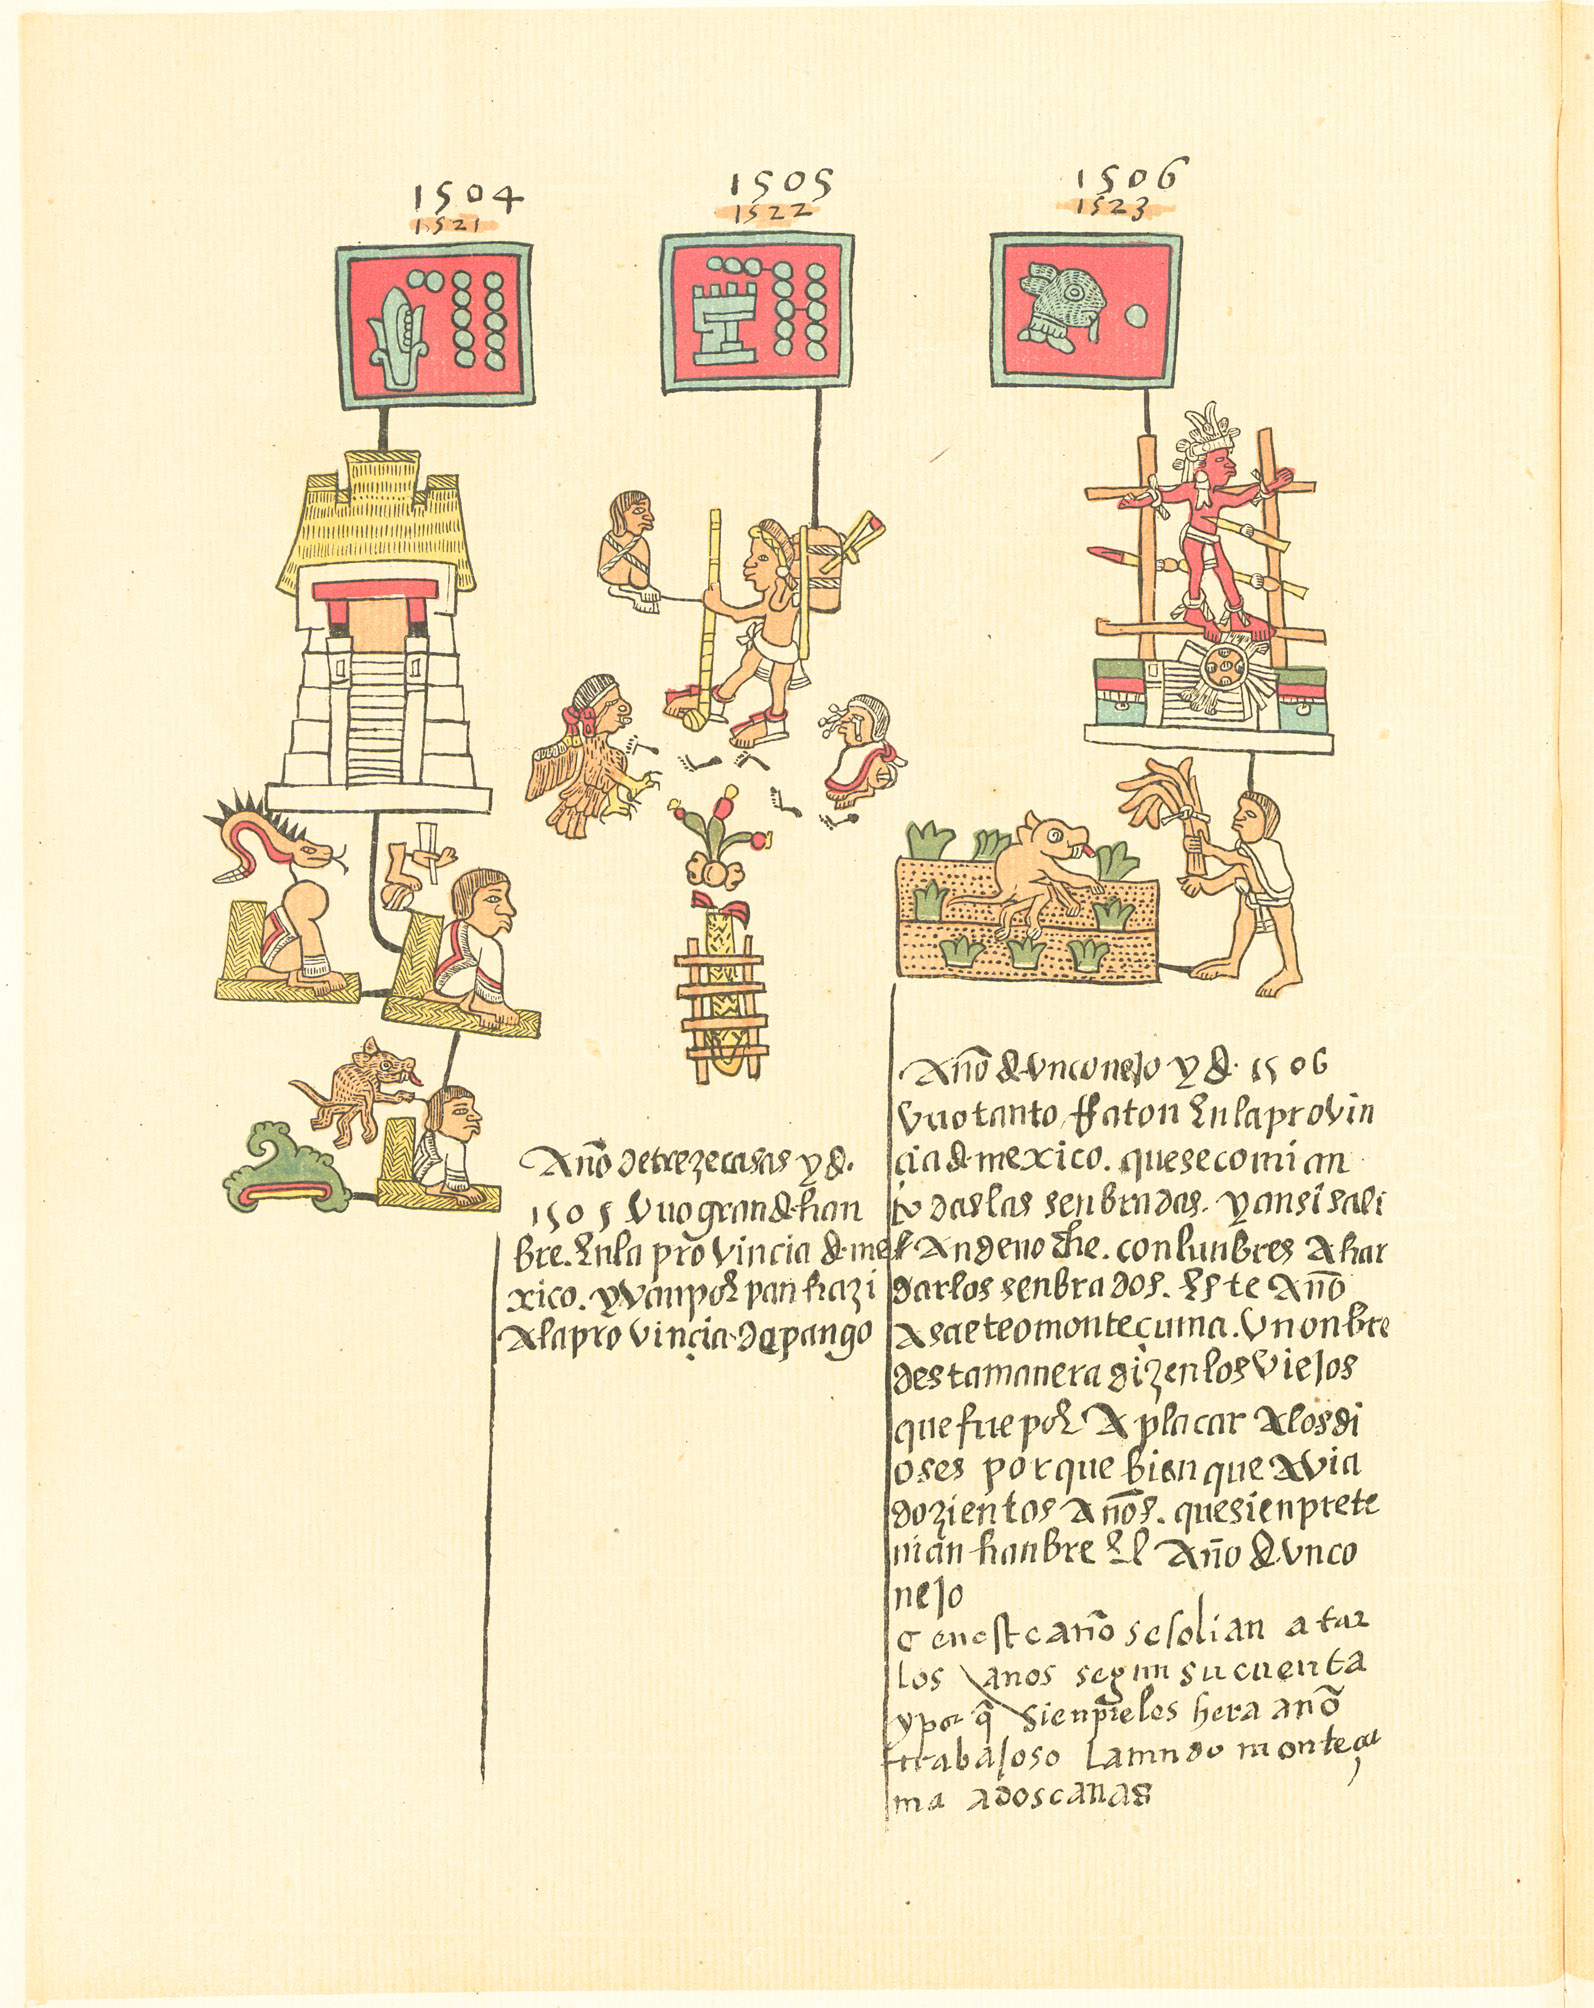 1504
1521
1505
1522
1506
1523
Año de treze casas y d.
1505 Vuo gran d. han
bre. En la pro vincia d. me
xico. y van por pan hazi
A la pro vinçia. de pango
Año d. vn conejo y d. 1506
Vuo tanto rraton En la provin
cia d. mexico. que se comian
to das las senbradas. y ansi sali
An de noche. con lunbres A har
dar los senbrados. Este Año
Asaeteo monteçuma. Vn onbre
desta manera dizen los viejos
que fue por A placar A los di
oses porque bien que Avia
dozientos Años. que sienpre te
nian hanbre El Año d. vn co
nejo
en este año se solian atar
los años segun su cuenta
y por q̃ sienpre les hera año
trabajoso la mudo monteçu
ma a dos cañas